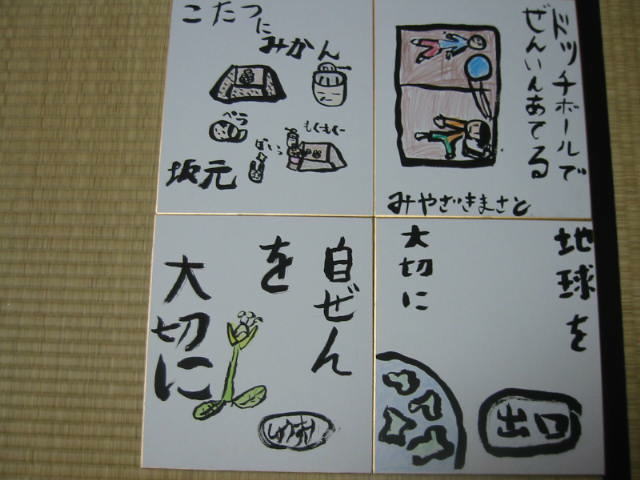 こたつに
みかん
ぺら
ぽいっ
もぐもぐ
坂元
ドッチボールで
ぜんいんあてる
みやざきまさと
自ぜん
を
大切に
地球を
大切に
出口